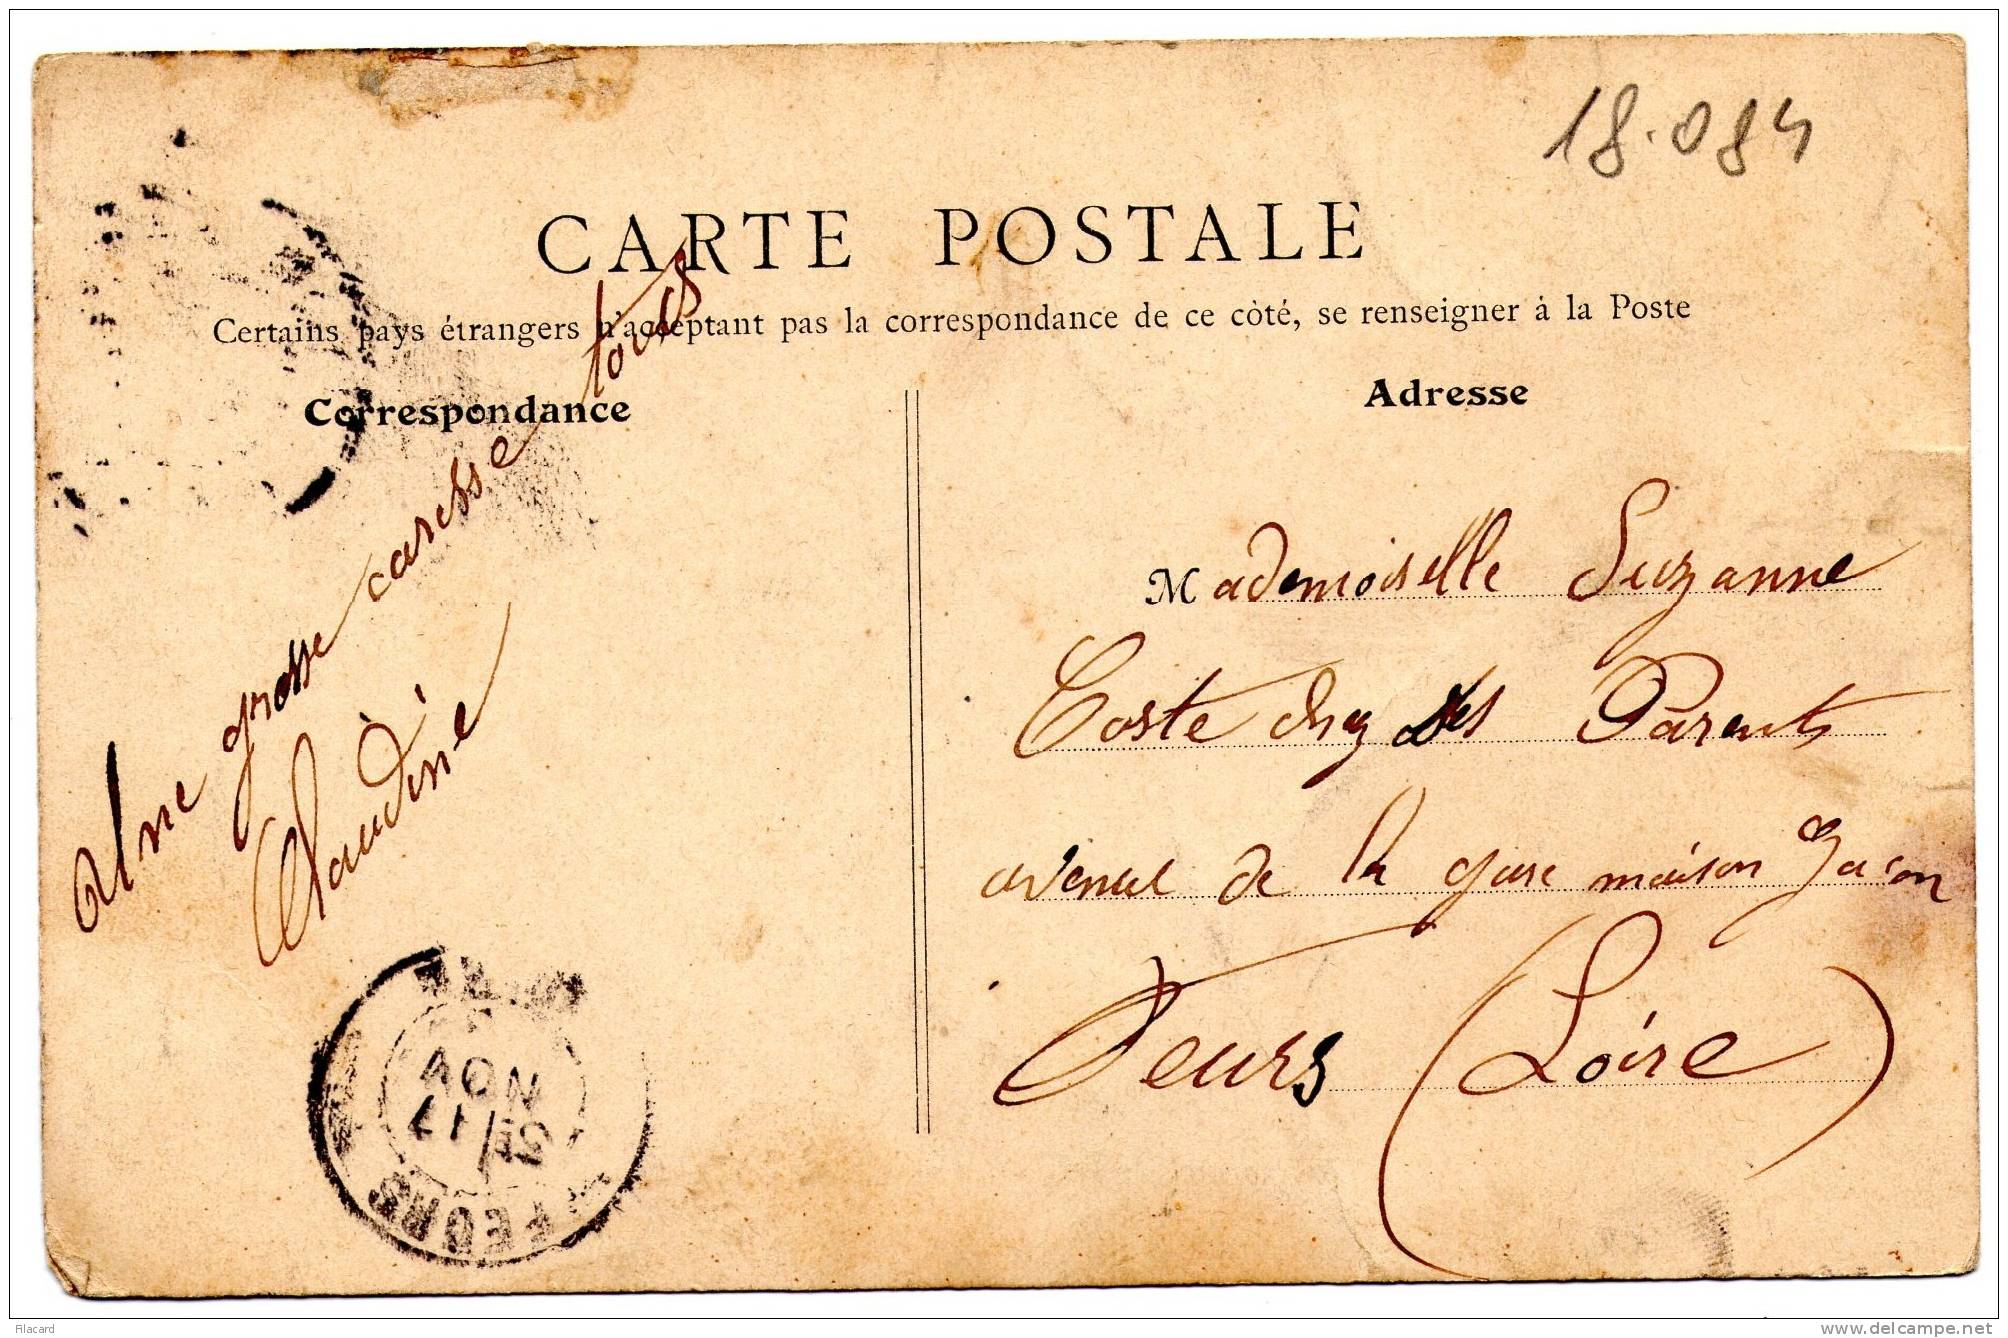 18.084
CARTE POSTALE
Certains pays étrangers n'acceptant pas la correspondance de ce côté, se renseigner à la Poste
Correspondance
Adresse
Une grosse caresse tous
Claudine
Mademoiselle Suzanne
Coste chez ses Parents
avenue de la gare maison
Feurs (Loire)
NOV
17
FEURS
Filacard
www.delcampe.net